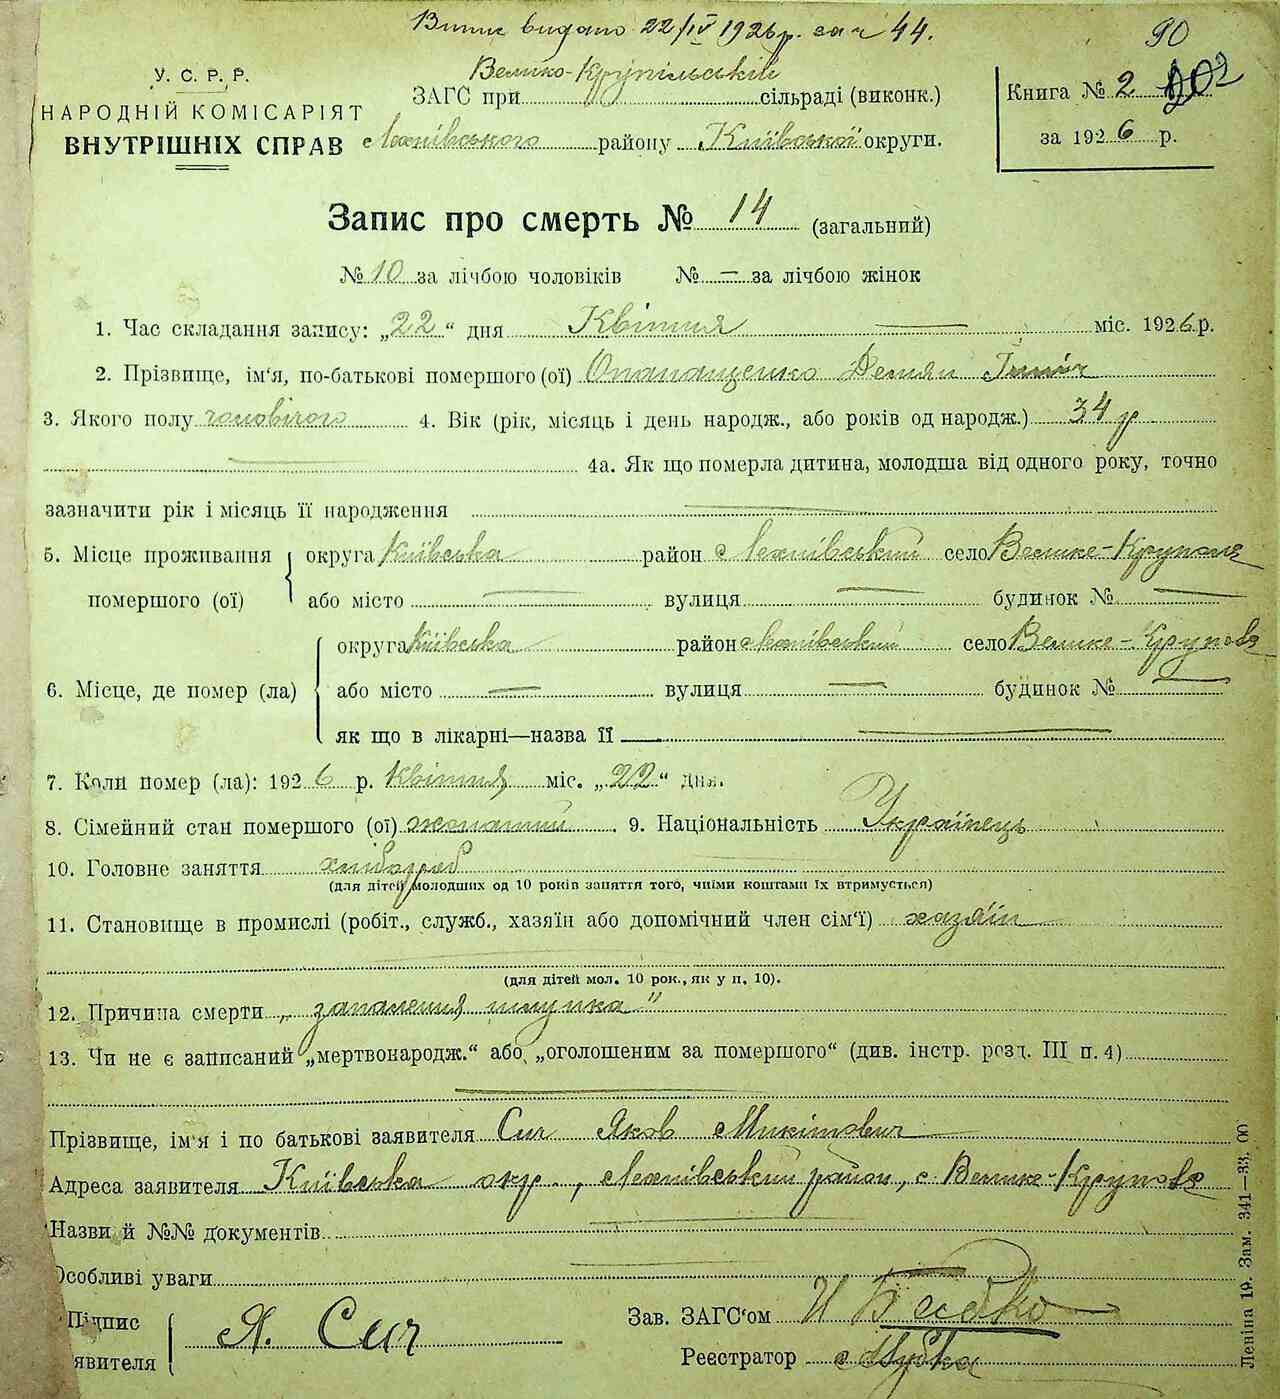 Випис видано 22/IV 1926 р. за ч 44.
90
У. С. Р. Р.
НАРОДНІЙ КОМІСАРІЯТ
ВНУТРІШНІХ СПРАВ
Велико-Крупільській
ЗАГС при сільраді (виконк.)
Яхнівського району Київської округи.
Книга № 2 202
за 1926 р.
Запис про смерть № 14 (загальний)
№ 10 за лічбою чоловіків № — за лічбою жінок
1. Час складання запису: „22“ дня Квітня міс. 1926 р.
2. Прізвище, ім‘я, по-батькові помершого (ої) Опанащенко Демян
3. Якого полу чоловічого 4. Вік (рік, місяць і день народж., або років од народж.) 34 р
4а. Як що померла дитина, молодша від одного року, точно
зазначити рік і місяць її народження
5. Місце проживання помершого (ої) округа Київська район Яхнівський село Велике-Крупole
або місто — вулиця — будинок № —
6. Місце, де помер (ла) округа Київська район Яхнівський село Велике-Круполя
або місто — вулиця — будинок № —
як що в лікарні—назва її —
7. Коли помер (ла): 1926 р. Квітня міс. „22“ дня.
8. Сімейний стан помершого (ої) жонатий 9. Національність Українець
10. Головне заняття хлібороб
(для дітей молодших од 10 років заняття того, чиїми коштами їх втримується)
11. Становище в промислі (робіт., служб., хазяїн або допомічний член сім‘ї) хазяїн
(для дітей мол. 10 рок., як у п. 10).
12. Причина смерти „запалення шлунка”
13. Чи не є записаний „мертвонародж.“ або „оголошеним за помершого“ (див. інстр. розд. III п. 4)
Прізвище, ім‘я і по батькові заявителя Сич Яков Микитович
Адреса заявителя Київська окр., Яхнівський район, с. Велике-Круполя
Назви й №№ документів
Особливі уваги
Підпис
явителя Я. Сич
Зав. ЗАГС‘ом
Реєстратор
Леніна 19. Зам. 341—33. 00